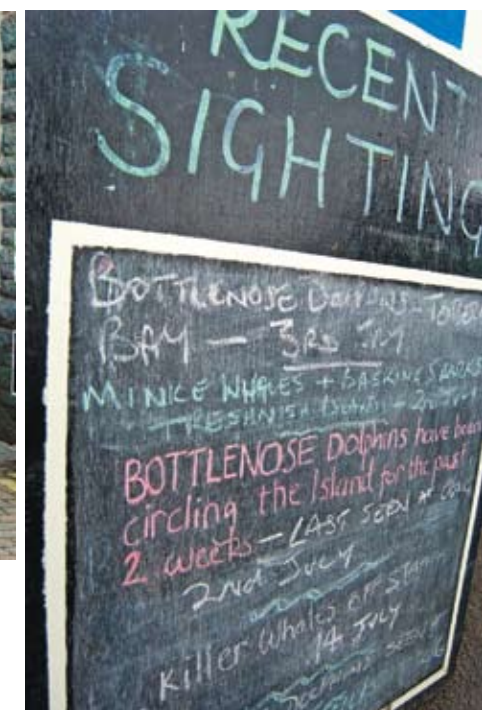 RECENT
SIGHTING
BOTTLENOSE DOLPHINS - TOBER
BAY - 3RD JULY
MINKE WHALES + BASKING SHARKS
TRESHNISH - 2nd July
BOTTLENOSE Dolphins have been
circling the Island for the past
2 weeks - LAST SEEN AT
2nd JULY
Killer Whales OFF
14 JULY
SEEN